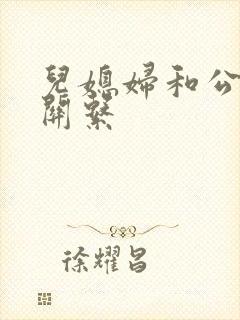 兒媳婦和公
關系
徐耀昌